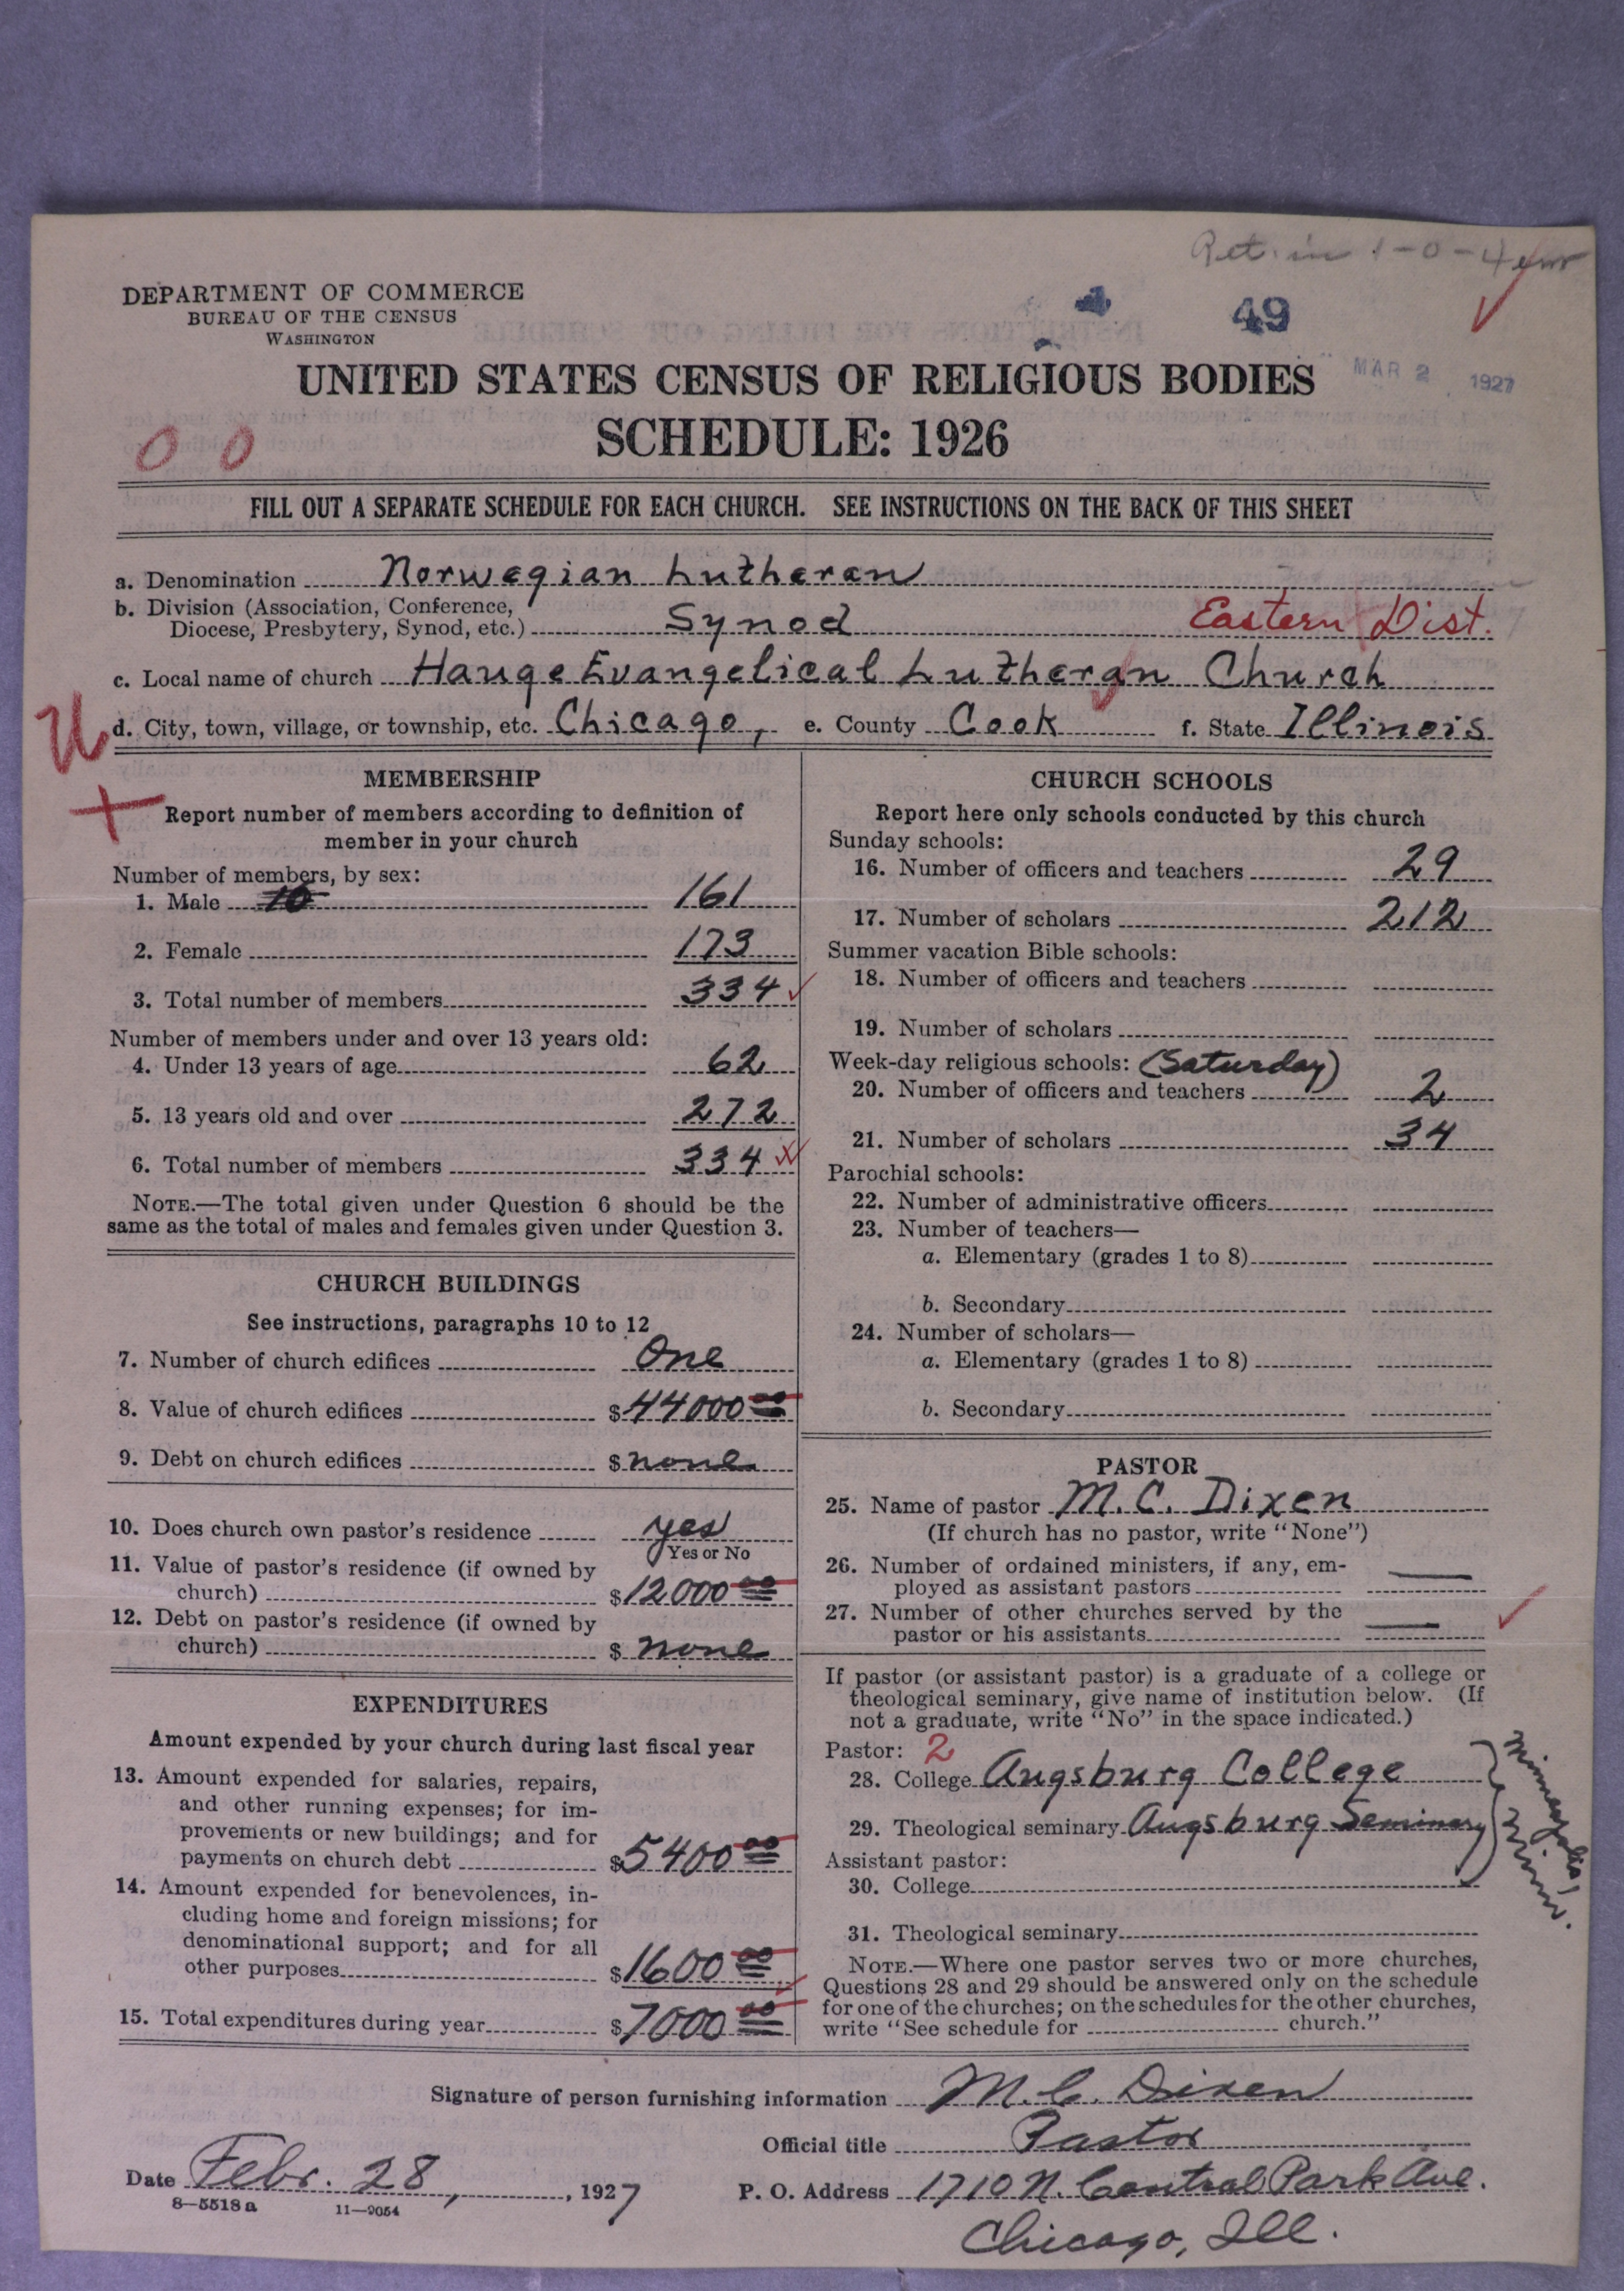 Ret. in 1-0-4
DEPARTMENT OF COMMERCE
BUREAU OF THE CENSUS
WASHINGTON
49
MAR 2 1927
UNITED STATES CENSUS OF RELIGIOUS BODIES
SCHEDULE: 1926
0 0
FILL OUT A SEPARATE SCHEDULE FOR EACH CHURCH. SEE INSTRUCTIONS ON THE BACK OF THIS SHEET
a. Denomination Norwegian Lutheran
b. Division (Association, Conference,
Diocese, Presbytery, Synod, etc.) Synod Eastern Dist.
c. Local name of church Hauge Evangelical Lutheran Church
U
d. City, town, village, or township, etc. Chicago, e. County Cook f. State Illinois
MEMBERSHIP
Report number of members according to definition of
member in your church
Number of members, by sex:
1. Male 10 161
2. Female 173
3. Total number of members 334
Number of members under and over 13 years old:
4. Under 13 years of age 62
5. 13 years old and over 272
6. Total number of members 334
NOTE.—The total given under Question 6 should be the
same as the total of males and females given under Question 3.
CHURCH BUILDINGS
See instructions, paragraphs 10 to 12
7. Number of church edifices One
8. Value of church edifices $44000 00
9. Debt on church edifices $none
10. Does church own pastor's residence yes
Yes or No
11. Value of pastor's residence (if owned by
church) $12000 00
12. Debt on pastor's residence (if owned by
church) $none
EXPENDITURES
Amount expended by your church during last fiscal year
13. Amount expended for salaries, repairs,
and other running expenses; for im-
provements or new buildings; and for
payments on church debt $5400 00
14. Amount expended for benevolences, in-
cluding home and foreign missions; for
denominational support; and for all
other purposes $1600 00
15. Total expenditures during year $7000 00
CHURCH SCHOOLS
Report here only schools conducted by this church
Sunday schools:
16. Number of officers and teachers 29
17. Number of scholars 212
Summer vacation Bible schools:
18. Number of officers and teachers
19. Number of scholars
Week-day religious schools: (Saturday)
20. Number of officers and teachers 2
21. Number of scholars 34
Parochial schools:
22. Number of administrative officers
23. Number of teachers—
a. Elementary (grades 1 to 8)
b. Secondary
24. Number of scholars—
a. Elementary (grades 1 to 8)
b. Secondary
PASTOR
25. Name of pastor M. C. Dixen
(If church has no pastor, write "None")
26. Number of ordained ministers, if any, em-
ployed as assistant pastors —
27. Number of other churches served by the
pastor or his assistants —
If pastor (or assistant pastor) is a graduate of a college or
theological seminary, give name of institution below. (If
not a graduate, write "No" in the space indicated.)
Pastor: 2
28. College Augsburg College
29. Theological seminary Augsburg Seminary
Minneapolis, Minn.
Assistant pastor:
30. College
31. Theological seminary
NOTE.—Where one pastor serves two or more churches,
Questions 28 and 29 should be answered only on the schedule
for one of the churches; on the schedules for the other churches,
write "See schedule for church."
Signature of person furnishing information M. C. Dixen
Official title Pastor
Date Febr. 28, 1927
P. O. Address 1710 N. Central Park Ave.
8—5518a 11—9054
Chicago, Ill.